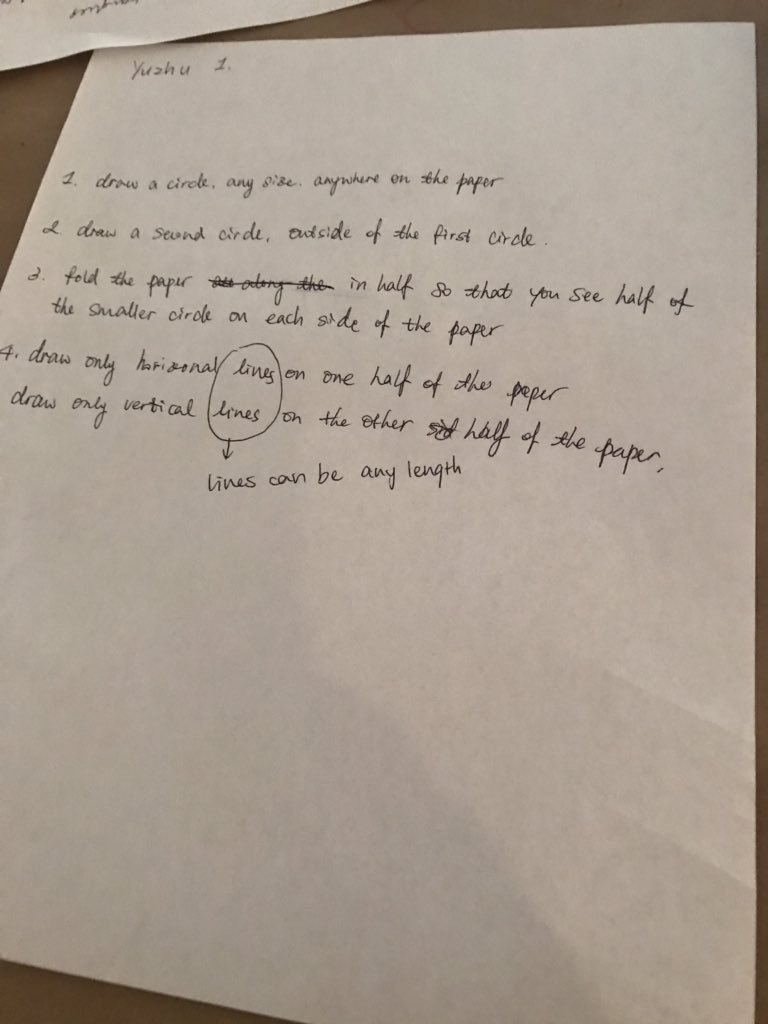 Yuzhu 1.
1. draw a circle, any size. anywhere on the paper
2. draw a second circle, outside of the first circle.
3. fold the paper along the in half so that you see half of
the smaller circle on each side of the paper
4. draw only horizonal lines on one half of the paper
draw only vertical lines on the other half of the paper.
lines can be any length